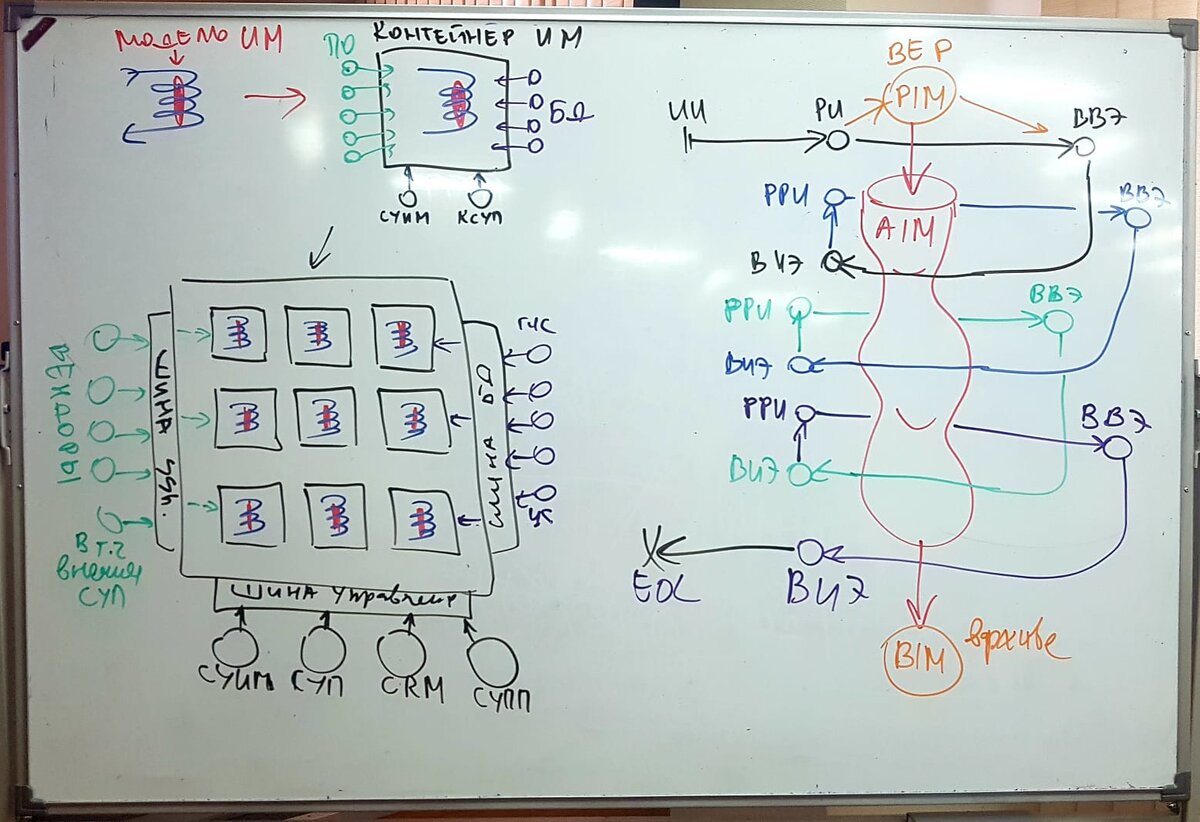 МОДЕЛЬ ИМ
ПО
КОНТЕЙНЕР ИМ
БД
СУИМ
КСУП
ШИНА
ШИНА БД
ГИС
В Т.Ч
внешняя
СУП
ШИНА Управление
СУИМ
СУП
CRM
СУПП
ВЕР
PIM
ИИ
РИ
ВВЭ
AIM
РРИ
ВВЭ
ВИЭ
РРИ
ВВЭ
ВИЭ
РРИ
ВВЭ
ВИЭ
EOL
ВИЭ
BIM
в архиве